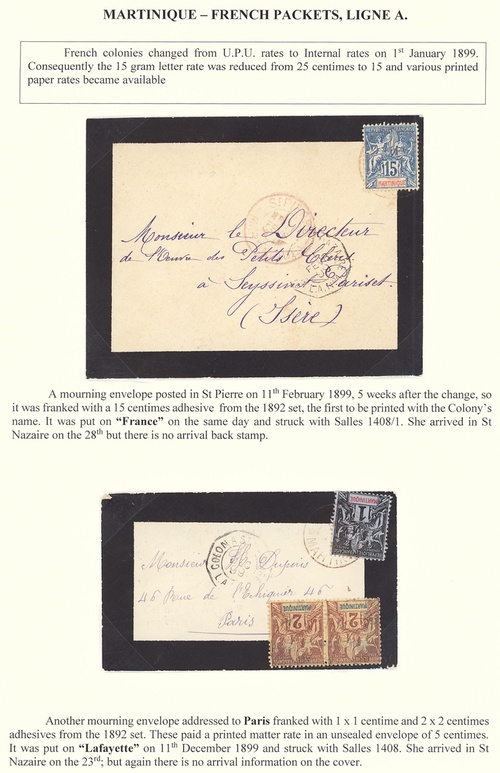 MARTINIQUE – FRENCH PACKETS, LIGNE A.
French colonies changed from U.P.U. rates to Internal rates on 1st January 1899.
Consequently the 15 gram letter rate was reduced from 25 centimes to 15 and various printed
paper rates became available
15
MARTINIQUE
Monsieur le Directeur
de l'Œuvre des Petits
à Seyssinet Pariset.
(Isère)
A mourning envelope posted in St Pierre on 11th February 1899, 5 weeks after the change, so
it was franked with a 15 centimes adhesive from the 1892 set, the first to be printed with the Colony's
name. It was put on "France" on the same day and struck with Salles 1408/1. She arrived in St
Nazaire on the 28th but there is no arrival back stamp.
MARTINIQUE
1
Monsieur Dupuis
45 Rue de l'Echiquier 45
Paris
MARTINIQUE MARTINIQUE
2 2
Another mourning envelope addressed to Paris franked with 1 x 1 centime and 2 x 2 centimes
adhesives from the 1892 set. These paid a printed matter rate in an unsealed envelope of 5 centimes.
It was put on "Lafayette" on 11th December 1899 and struck with Salles 1408. She arrived in St
Nazaire on the 23rd; but again there is no arrival information on the cover.